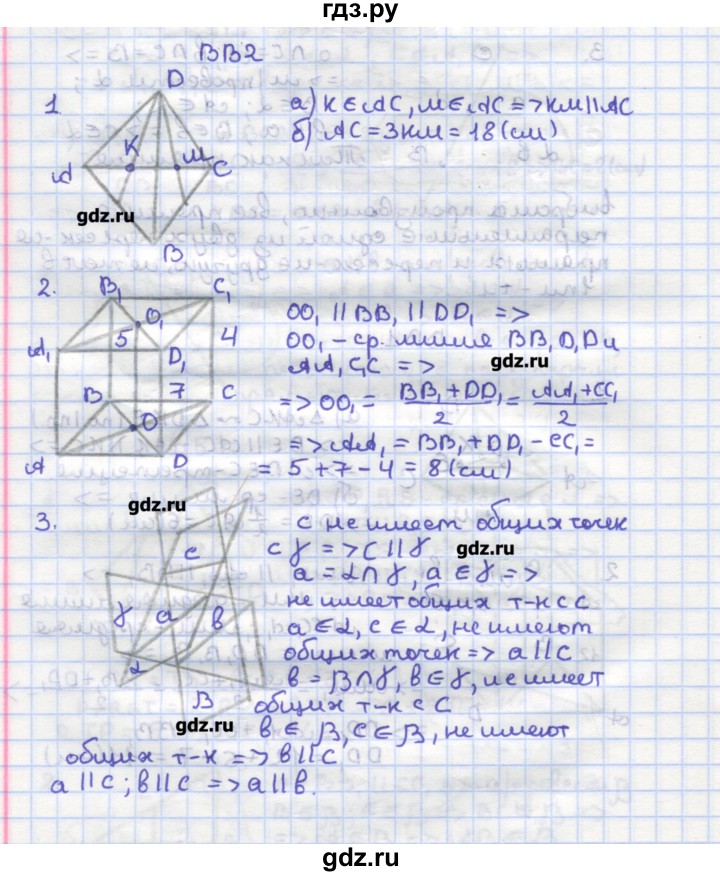 гдз.ру
ВВ2
1.
D
К
М
А
С
В
а) К ∈ АС, М ∈ АС => КМ || АС
б) АС = 3КМ = 18 (см)
gdz.ru
2.
B₁
C₁
O₁
5
4
A₁
D₁
7
B
C
O
A
D
OO₁ || BB₁ || DD₁ =>
OO₁ - ср. линия BB₁D₁D и
AA₁C₁C =>
gdz.ru
=> OO₁ = (BB₁ + DD₁)/2 = (AA₁ + CC₁)/2
=> AA₁ = BB₁ + DD₁ - CC₁ =
= 5 + 7 - 4 = 8 (см)
gdz.ru
3.
c
γ
a
b
α
β
с не имеет общих точек
с γ => c || γ.
gdz.ru
a = α ∩ γ, a ∈ γ =>
не имеет общих т-к с с
a ∈ α, c ∈ α, не имеют
общих точек => a || c
b = β ∩ γ, b ∈ γ, не имеет
gdz.ru
общих т-к с С
b ∈ β, c ∈ β, не имеют
общих т-к => b || c
a || c ; b || c => a || b.
gdz.ru